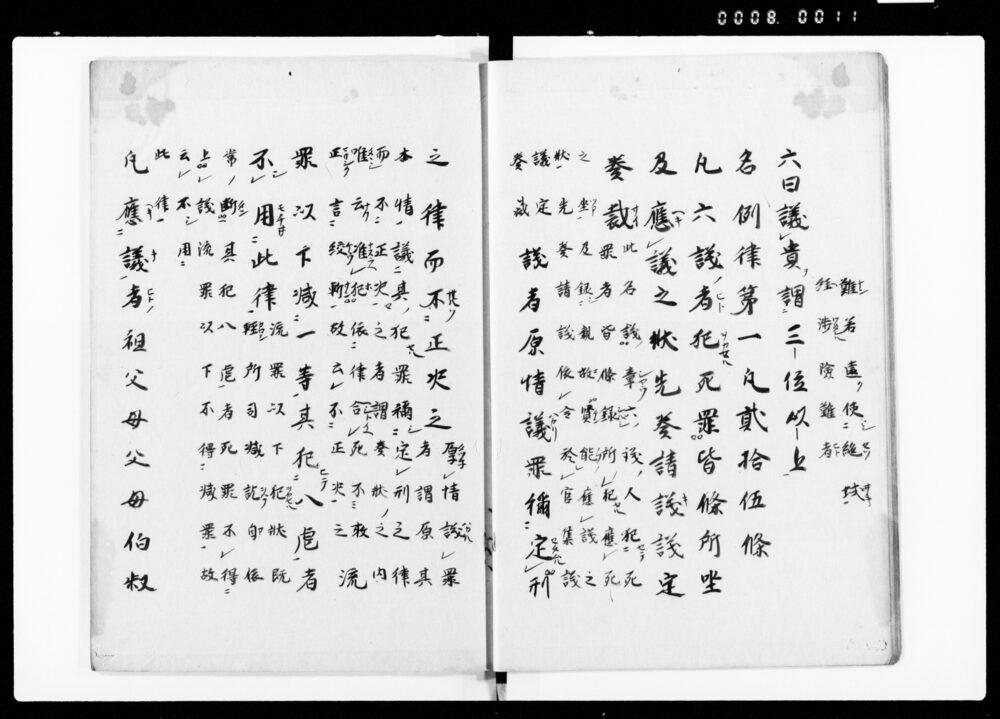 0008. 0011
難若遠使絶域
経渉険難者
六曰議貴謂三位以上
名例律第一凡貳拾伍條
凡六議者犯死罪皆條所坐
及應議之狀先奏請議議定
奏裁
此名議章六議人犯死
罪者皆條録所犯應死
之坐及録親故賢能應議之
狀先奏請議依令於官集議
議定
奏裁
議者原情議罪稱定刑
之律而不正决之
原情議罪
者謂原其
本情議其犯罪稱定刑之律
而不正决之者謂奏狀之内
唯云准犯依律合死不敢
正言絞斬故云不正决之
流
罪以下减一等其犯八虐者
不用此律
流罪以下犯狀既
輕所司减訖即依
常断其犯八虐者死罪不得
上議流罪以下不得减罪故
云不用
此律
凡應議者祖父母父母伯叔